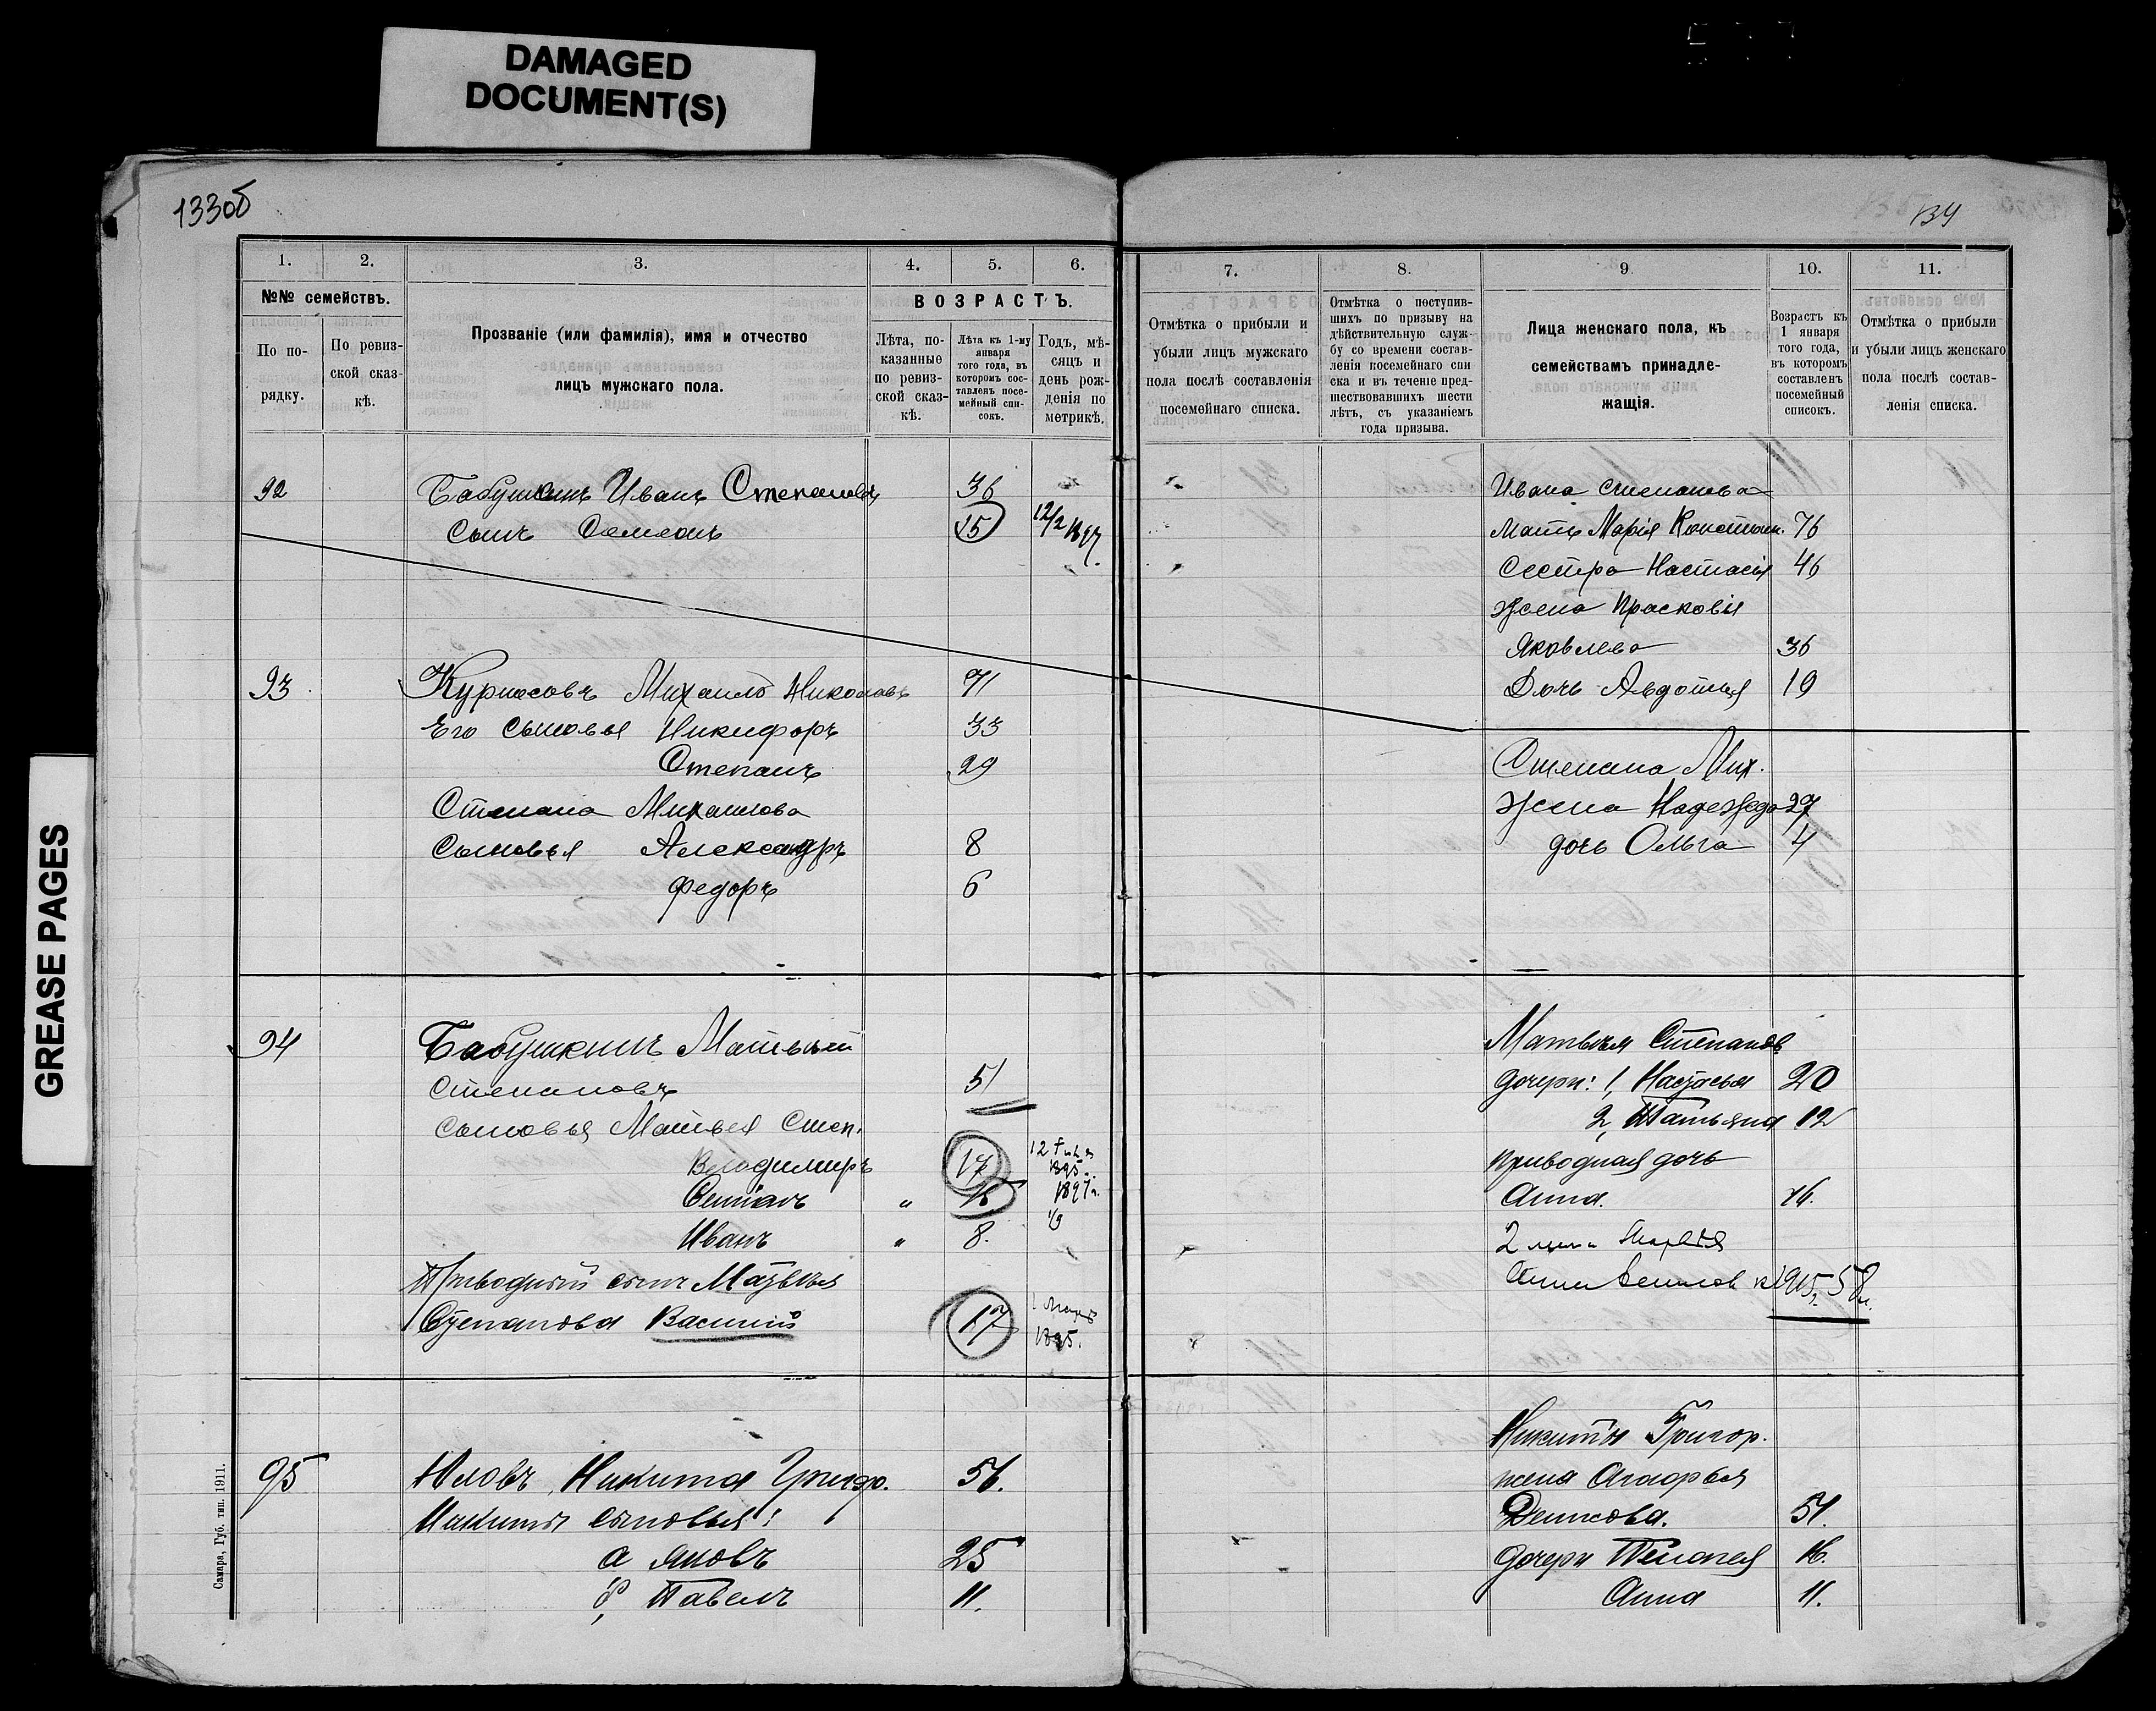 DAMAGED
DOCUMENT(S)
GREASE PAGES
133об
134
1.
2.
3.
4.
5.
6.
№№ семействъ.
По по-
рядку.
По ревиз-
ской сказ-
кѣ.
Прозваніе (или фамилія), имя и отчество
лицъ мужскаго пола.
ВОЗРАСТЪ.
Лѣта, по-
казанные
по ревиз-
ской сказ-
кѣ.
Лѣта къ 1-му
января
того года, въ
которомъ сос-
тавленъ посе-
мейный спи-
сокъ.
Годъ, мѣ-
сяцъ и
день рож-
денія по
метрикѣ.
92 Бабушкинъ Иванъ Степановъ 36
Сынъ Семенъ 15 12/2 1897.
93 Михаилъ Николаевъ 71
Его сыновья Никифоръ 33
Степанъ 29
Степана Михаилова
Сыновья Александръ 8
Федоръ 6
94 Бабушкинъ Матвѣй
Степановъ 51
сыновья Матвея Степ.
Владимиръ 17 1895
Степанъ " 15 1897г.
Иванъ " 8.
Приводный сынъ Матвѣя
Степанова Василий 17 1 Марта
1895.
95 Никита Григор. 56.
Никиты сыновья:
а Яковъ 25
б, Павелъ 11.
Самара, Губ. тип. 1911.
7.
8.
9
10.
11.
Отмѣтка о прибыли и
убыли лицъ мужскаго
пола послѣ составленія
посемейнаго списка.
Отмѣтка о поступив-
шихъ по призыву на
дѣйствительную служ-
бу со времени состав-
ленія посемейнаго спи
ска и въ теченіе пред-
шествовавшихъ шести
лѣтъ, съ указаніемъ
года призыва.
Лица женскаго пола, къ
семействамъ принадле-
жащія.
Возрастъ къ
1 января
того года,
въ которомъ
составленъ
посемейный
списокъ.
Отмѣтка о прибыли
и убыли лицъ женскаго
пола послѣ состав-
ленія списка.
Ивана Степанова
Мать Марія Констан. 76
Сестра Настасія 46
Жена Прасковія
Яковлева 36
Дочь Авдотья 19
Степана Мих.
Жена Надежда 27
дочь Ольга 4
Матвѣя Степанов
дочери: 1, Настасья 20
2, Татьяна 12
приводная дочь
Анна. 16.
2 жена
1915г. 58л.
Никиты Григор.
жена Агафья
Денисова. 51.
дочери Пелагея 16.
Анна 11.